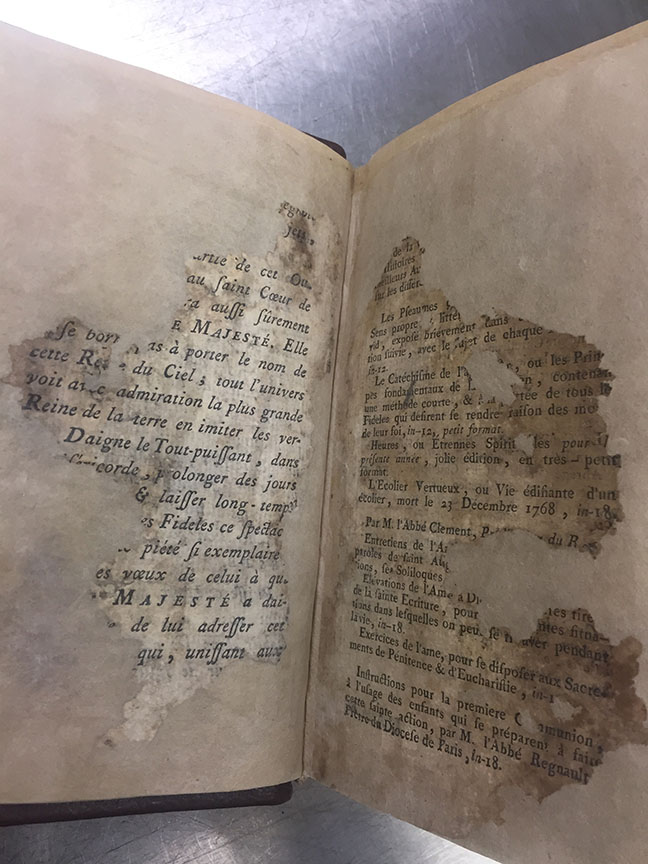 jets,
rtue de cet Ou-
au ſaint Cœur de
ra auſſi ſûrement
E MAJESTÉ. Elle
ſe bor as à porter le nom de
cette Re du Ciel; tout l'univers
voit avec admiration la plus grande
Reine de la terre en imiter les ver-
Daigne le Tout-puiſſant, dans
icorde, p olonger des jours
& laiſſer long-temp
es Fideles ce ſpectac
piété ſi exemplaire
es vœux de celui à qu
MAJESTÉ a dai-
de lui adreſſer cet
qui, uniſſant aux
de
Hiſtoires
eilleurs A
ſur les différ-
Les Pſeaumes
Sens propre litté
vid, expoſé brievement dans
tion ſuivie, avec le ſujet de chaque
in-12.
Le Catéchiſme de l' ou les Prin
pes fondamentaux de en, contena
une méthode courte, & à rtée de tous l
Fideles qui deſirent ſe rendre raiſon des mo
de leur foi, in-12, petit format.
Heures, ou Etrennes Spirit les pour l
préſente année, jolie édition, en très-petit
format.
L'Ecolier Vertueux, ou Vie édifiante d'un
écolier, mort le 23 Décembre 1768, in-18.
Par M. l'Abbé Clement, p du R
Entretiens de l'A
paroles de ſaint A
ions, ſes Soliloques
Elévations de l'Ame à D es tire
de la ſainte Ecriture, pour ntes ſitua-
tions dans leſquelles on peut ſe t uver pendant
la vie, in-18.
Exercices de l'ame, pour ſe diſpoſer aux Sacre-
ments de Pénitence & d'Euchariſtie, in-1
Inſtructions pour la premiere C mmunion,
à l'uſage des enfants qui ſe préparent à faire
cette ſainte action, par M. l'Abbé Regnault
Prêtre du Dioceſe de Paris, in-18.